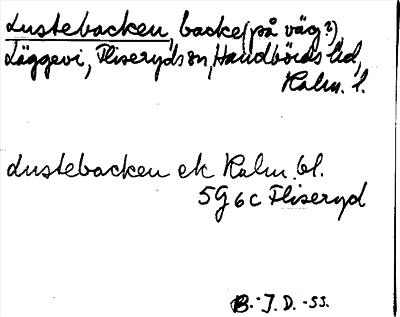 Lustebacken, backe (på väg?),
Läggevi, Fliseryds sn, Handbörds hd,
Kalm. l.
Lustebacken ek Kalm. bl.
5G 6c Fliseryd
B. J. D. -53.